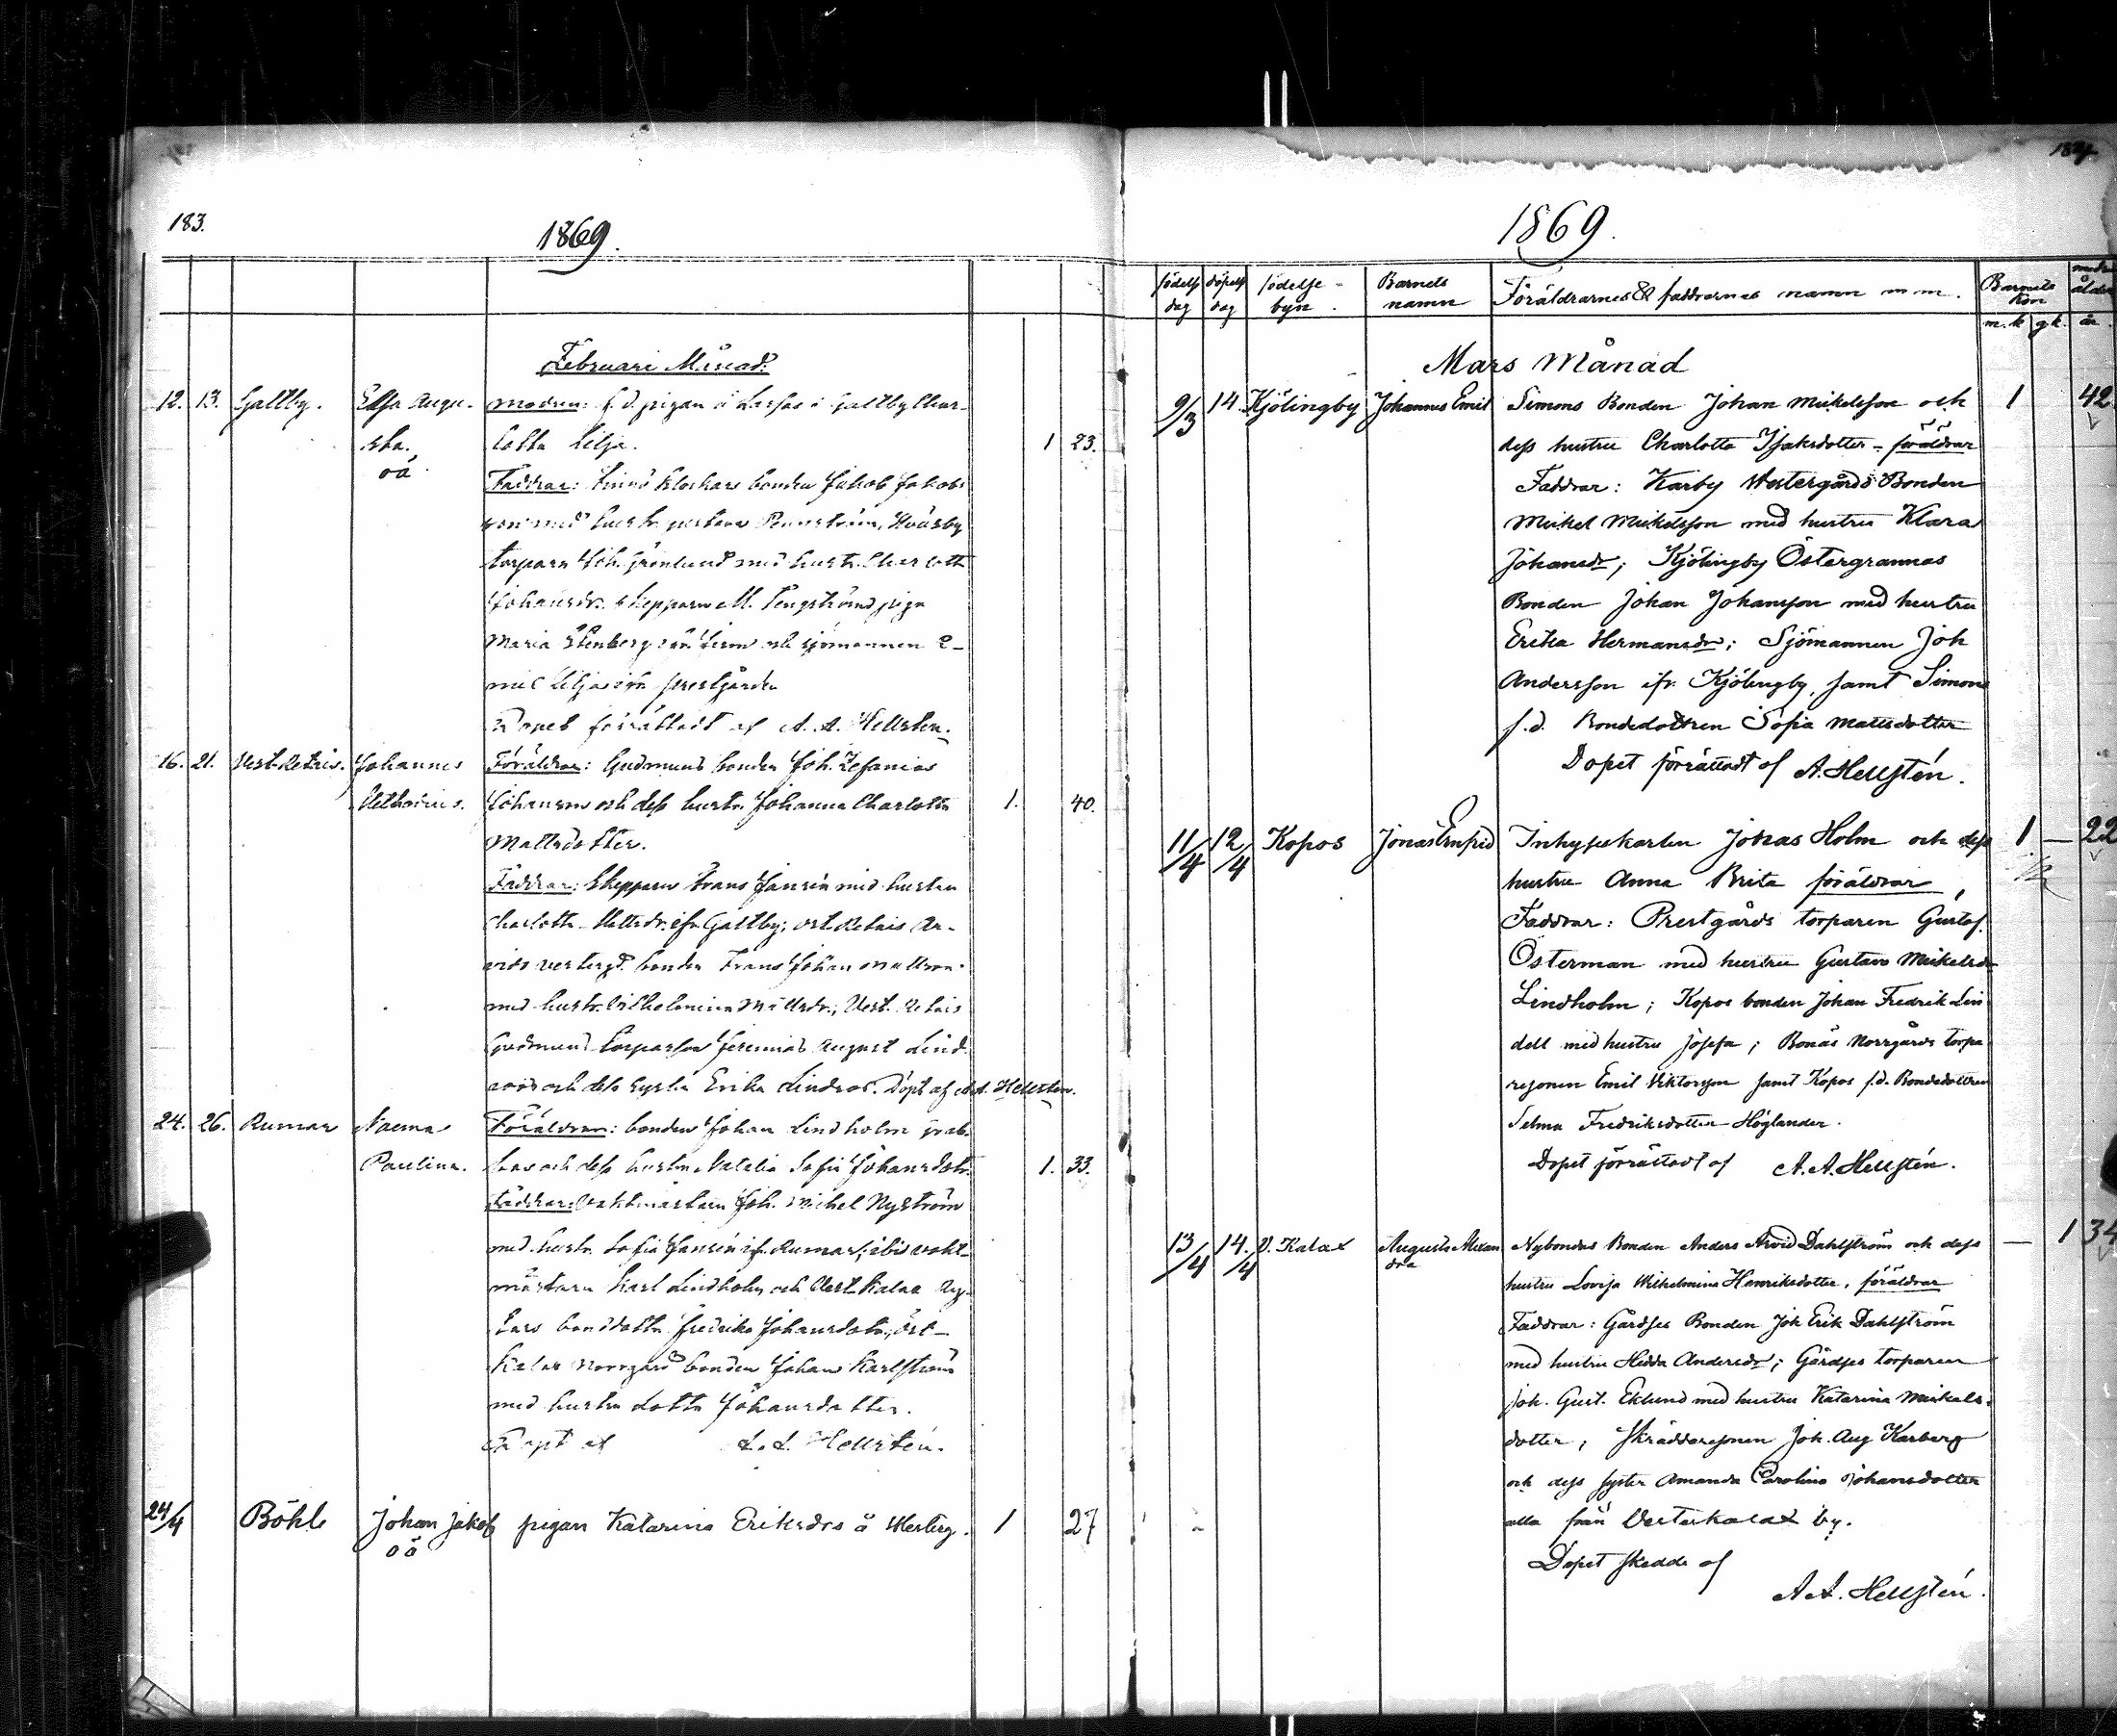 183.
1869.
Februari Månad.
12. 13. Galtby. Elsa Augu- modren: f.d. pigan å Larsas i Galtby Char-
sta. lotta Lilja. 1 23.
oä
Faddrar: Klockars bonden Jakob Jakobs
son med hustr.
torparn Joh. Grönlund med hustr. Charlott
Johansdr. skepparn M. Tengström pigan
Maria Stenberg och sjömannen E-
mil Lilja ifrån prestgården
Dopet förrättadt af A. A. Hellsten.
16. 21. Vest. Retais. Johannes Föräldrar: Gudmunds bonden Joh. Zefanias
Johanson och dess hustr. Johanna Charlotta 1. 40.
Mattsdotter.
Faddrar: Skepparn Frans Jansén med hustru
Charlotta Mattsdr. ifr. Galtby; öst. Retais Ar-
vids vestergd. bonden Frans Johan Mattson
med hustr. Vilhelmina Mattsdr.; Vest. Retais
Gudmunds torparson Jeremias August Lind-
roos och dess syster Erika Lindroos. Döpt af A. A. Hellsten.
24. 26. Rumar Naema Föräldrar: bonden Johan Lindholm
Paulina. och dess hustru Natalia Sofia Johansdotr. 1. 33.
Faddrar: Vaktmästarn Joh. Mickel Nyström
med hustr. Sofia Jansén ifr. Rumar; ibid vakt-
mästarn Karl Lindholm och Vest. Kalax Ny-
Lars bonddottr. Fredrika Johansdotr.; Öst-
Kalax Norrgårds bonden Johan Karlström
med hustru Lotta Johansdotter.
Döpt af A. A. Hellstén.
24/4 Böhle Johan Jakob pigan Katarina Eriksdr å Westerg. 1 27
oä
184
1869.
födelse dag döpelse dag födelse-byn. Barnets namn Föräldrarnes & faddrarnes namn m m. Barnets kön modrens ålder
m.k. q.k. år.
Mars Månad
9/3 14. Kjölingby Johannes Emil Simons Bonden Johan Mickelsson och 1 42
dess hustru Charlotta Isaksdotter - föräldrar
Faddrar: Karby Westergårds Bonden
Mickel Mickelsson med hustru Klara
Johansdr; Kjölingby Östergrannas
Bonden Johan Johansson med hustru
Erika Hermansdr; Sjömannen Joh
Andersson ifr. Kjölingby, samt Simons
f.d. Bondedottren Sofia Mattsdotter
Dopet förrättadt af A. Hellstén.
11/4 12/4 Kopos Jonas Ernfrid Inhyseskarlen Jonas Holm och dess 1 — 22
hustru Anna Brita föräldrar,
Faddrar: Prestgårds torparen Gustaf
Österman med hustru Gustava Mickelsdr
Lindholm; Kopos bonden Johan Fredrik Lin
dell med hustru Josefa; Bonäs Norrgårds torpa
resonen Emil Viktorsson samt Kopos f.d. Bondedottren
Selma Fredriksdotter Höglander.
Dopet förrättadt af A. A. Hellstén.
13/4 14./4 V. Kalax Augusta Alexan Nybondas Bonden Anders Arvid Dahlström och dess — 1 34
dra
hustru Lovisa Wilhelmina Henriksdotter, föräldrar
Faddrar: Gårdses Bonden Joh Erik Dahlström
med hustru Hedda Andersdr; Gårdses torparen
Joh. Gust. Eklund med hustru Katarina Mickels-
dotter; Skräddaresonen Joh. Aug Karberg
och dess syster Amanda Carolina Johansdotter
alla från Vesterkalax by.
Dopet skedde af
A A. Hellstén.